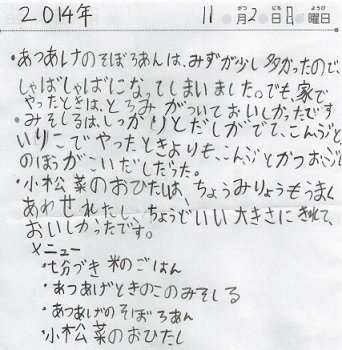 2014年 11月2日日曜日
がつ にち ようび
・あつあげのそぼろあんは、みずが少し多かったので、
しゃばしゃばになってしまいました。でも、家で
やったときは、とろみがついておいしかったです
・みそしるは、しっかりとだしがでて、こんぶと、
いりこでやったときよりも、こんぶとかつおぶし
のほうがこいだしだった。
・小松菜のおひたしは、ちょうみりょうもうまく
あわせれたし、ちょうどいい大きさにきれて、
おいしかったです。
メニュー
・七分づき米のごはん
・あつあげときのこのみそしる
・あつあげのそぼろあん
・小松菜のおひたし